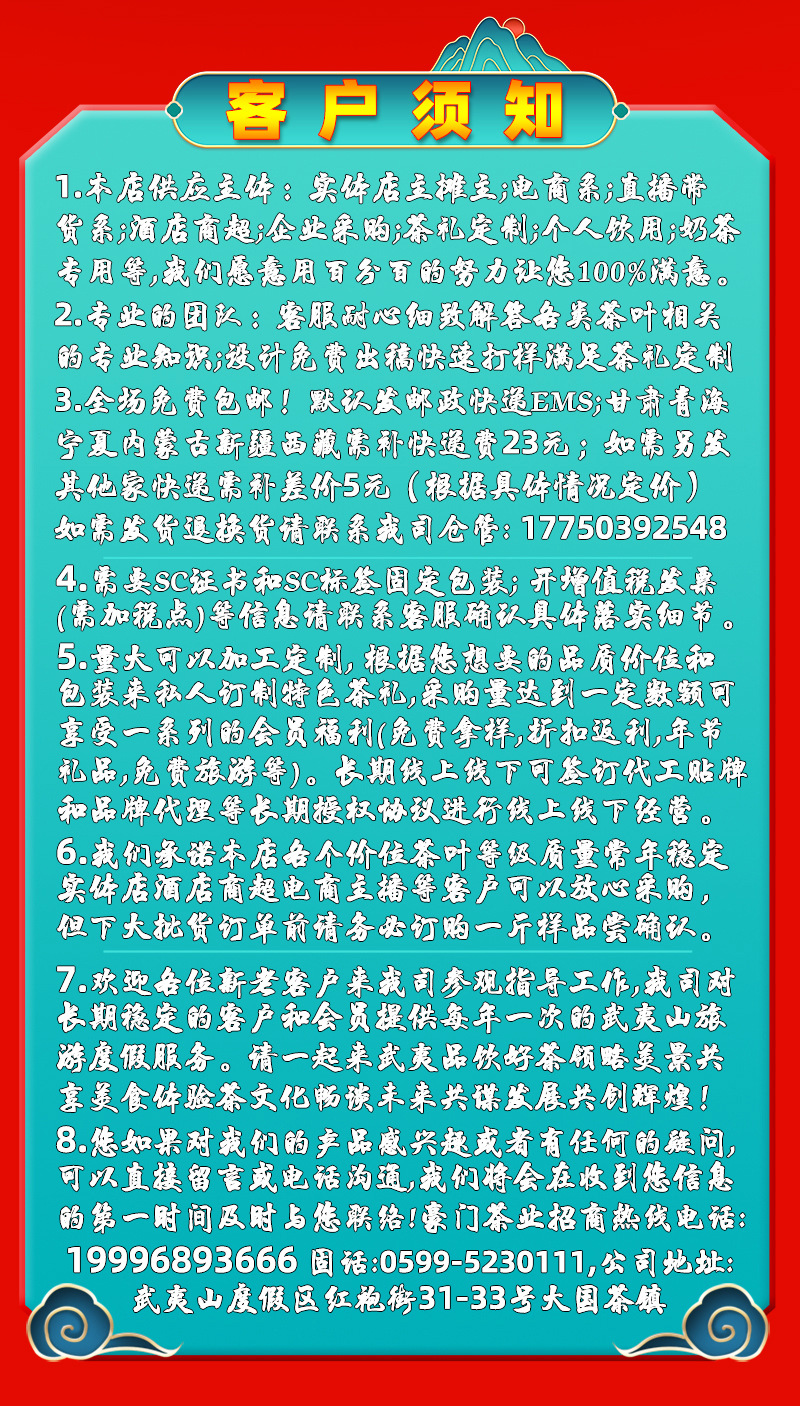 客户须知
1.本店供应主体：实体店主摊主;电商系;直播带
货系;酒店商超;企业采购;茶礼定制;个人饮用;奶茶
专用等,我们愿意用百分百的努力让您100%满意。
2.专业的团队：客服耐心细致解答各类茶叶相关
的专业知识;设计免费出稿快速打样满足茶礼定制
3.全场免费包邮！默认发邮政快递EMS;甘肃青海
宁夏内蒙古新疆西藏需补快递费23元；如需另发
其他家快递需补差价5元（根据具体情况定价）
如需发货退换货请联系我司仓管: 17750392548
4.需要SC证书和SC标签固定包装; 开增值税发票
(需加税点)等信息请联系客服确认具体落实细节。
5.量大可以加工定制, 根据您想要的品质价位和
包装来私人订制特色茶礼,采购量达到一定数额可
享受一系列的会员福利(免费拿样,折扣返利,年节
礼品,免费旅游等)。长期线上线下可签订代工贴牌
和品牌代理等长期授权协议进行线上线下经营。
6.我们承诺本店各个价位茶叶等级质量常年稳定
实体店酒店商超电商主播等客户可以放心采购，
但下大批货订单前请务必订购一斤样品尝确认。
7.欢迎各位新老客户来我司参观指导工作,我司对
长期稳定的客户和会员提供每年一次的武夷山旅
游度假服务。请一起来武夷品饮好茶领略美景共
享美食体验茶文化畅谈未来共谋发展共创辉煌！
8.您如果对我们的产品感兴趣或者有任何的疑问,
可以直接留言或电话沟通,我们将会在收到您信息
的第一时间及时与您联络!豪门茶业招商热线电话:
19996893666 固话:0599-5230111,公司地址:
武夷山度假区红袍街31-33号大国茶镇